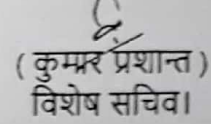 ( कुमार प्रशान्त )
विशेष सचिव।